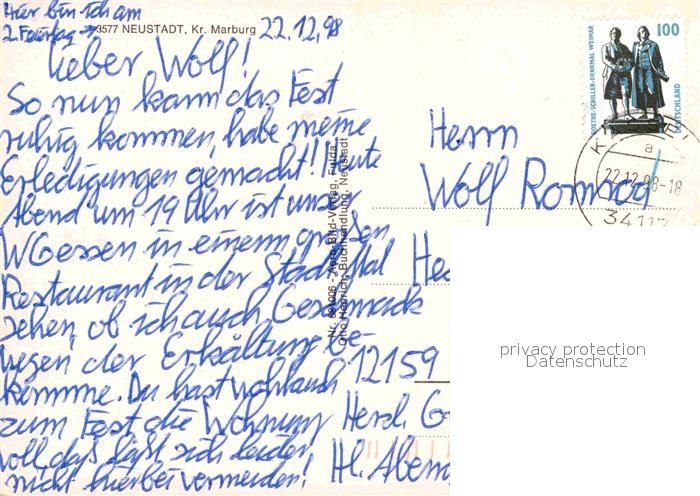 Hier bin ich am
2. Feiertag → 3577 NEUSTADT, Kr. Marburg 22.12.98
Lieber Wolf!
So nun kann das Fest
ruhig kommen, habe meine
Erledigungen gemacht! Heute
Abend um 19 Uhr ist unser
WGessen in einem großen
Restaurant in der Stadt. Mal
sehen, ob ich auch Geschmack
wegen der Erkältung be-
komme. Du hast wohl auch
zum Fest die Wohnung
voll, das läßt sich leider
nicht hierbei vermeiden!
Herzl. G
Hl. Abend
Nr. 681006 - Aero-Bild-Verlag, Fulda
Otto Henrich, Buchhandlung, Neustadt
GOETHE-SCHILLER-DENKMAL WEIMAR
100
DEUTSCHLAND
K
a
22.12.98-18
34117
Herrn
Wolf
He
12159
privacy protection
Datenschutz